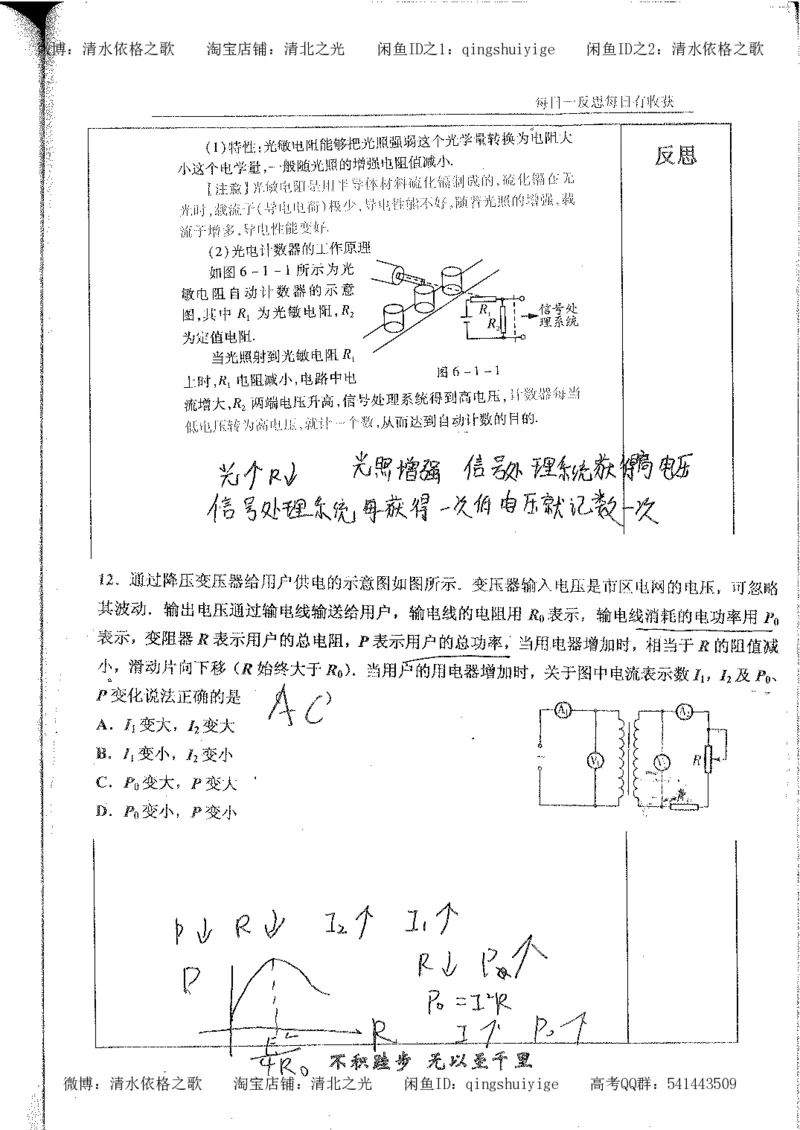 微博：清水依格之歌 淘宝店铺：清北之光 闲鱼ID之1：qingshuiyige 闲鱼ID之2：清水依格之歌
每日一反思每日有收获
反思
(1)特性:光敏电阻能够把光照强弱这个光学量转换为电阻大
小这个电学量,一般随光照的增强电阻值减小.
【注意】光敏电阻是用半导体材料硫化镉制成的,硫化镉在无
光时,载流子(导电电荷)极少,导电性能不好,随着光照的增强,载
流子增多,导电性能变好.
(2)光电计数器的工作原理
如图6-1-1所示为光
敏电阻自动计数器的示意
图,其中R₁为光敏电阻,R₂
为定值电阻.
当光照射到光敏电阻R₁
上时,R₁电阻减小,电路中电
流增大,R₂两端电压升高,信号处理系统得到高电压,计数器每当
低电压转为高电压,就计一个数,从而达到自动计数的目的.
R₁
R₂
信号处
理系统
图6-1-1
光个R↓ 光照增强 信号处理系统获得高电压
信号处理系统每获得一次低电压就记数一次
12．通过降压变压器给用户供电的示意图如图所示．变压器输入电压是市区电网的电压，可忽略
其波动．输出电压通过输电线输送给用户，输电线的电阻用R₀表示，输电线消耗的电功率用P₀
表示，变阻器R表示用户的总电阻，P表示用户的总功率，当用电器增加时，相当于R的阻值减
小，滑动片向下移（R始终大于R₀）．当用户的用电器增加时，关于图中电流表示数I₁，I₂及P₀、
P变化说法正确的是
AC
A．I₁变大，I₂变大
B．I₁变小，I₂变小
C．P₀变大，P变大
D．P₀变小，P变小
A₁
A₂
V₁
R
P↓ R↓ I₂↑ I₁↑
R↓ P↑
P
P₀=I²R
R
I↑ P₀↑
4R₀
不积跬步 无以至千里
微博：清水依格之歌 淘宝店铺：清北之光 闲鱼ID：qingshuiyige 高考QQ群：541443509